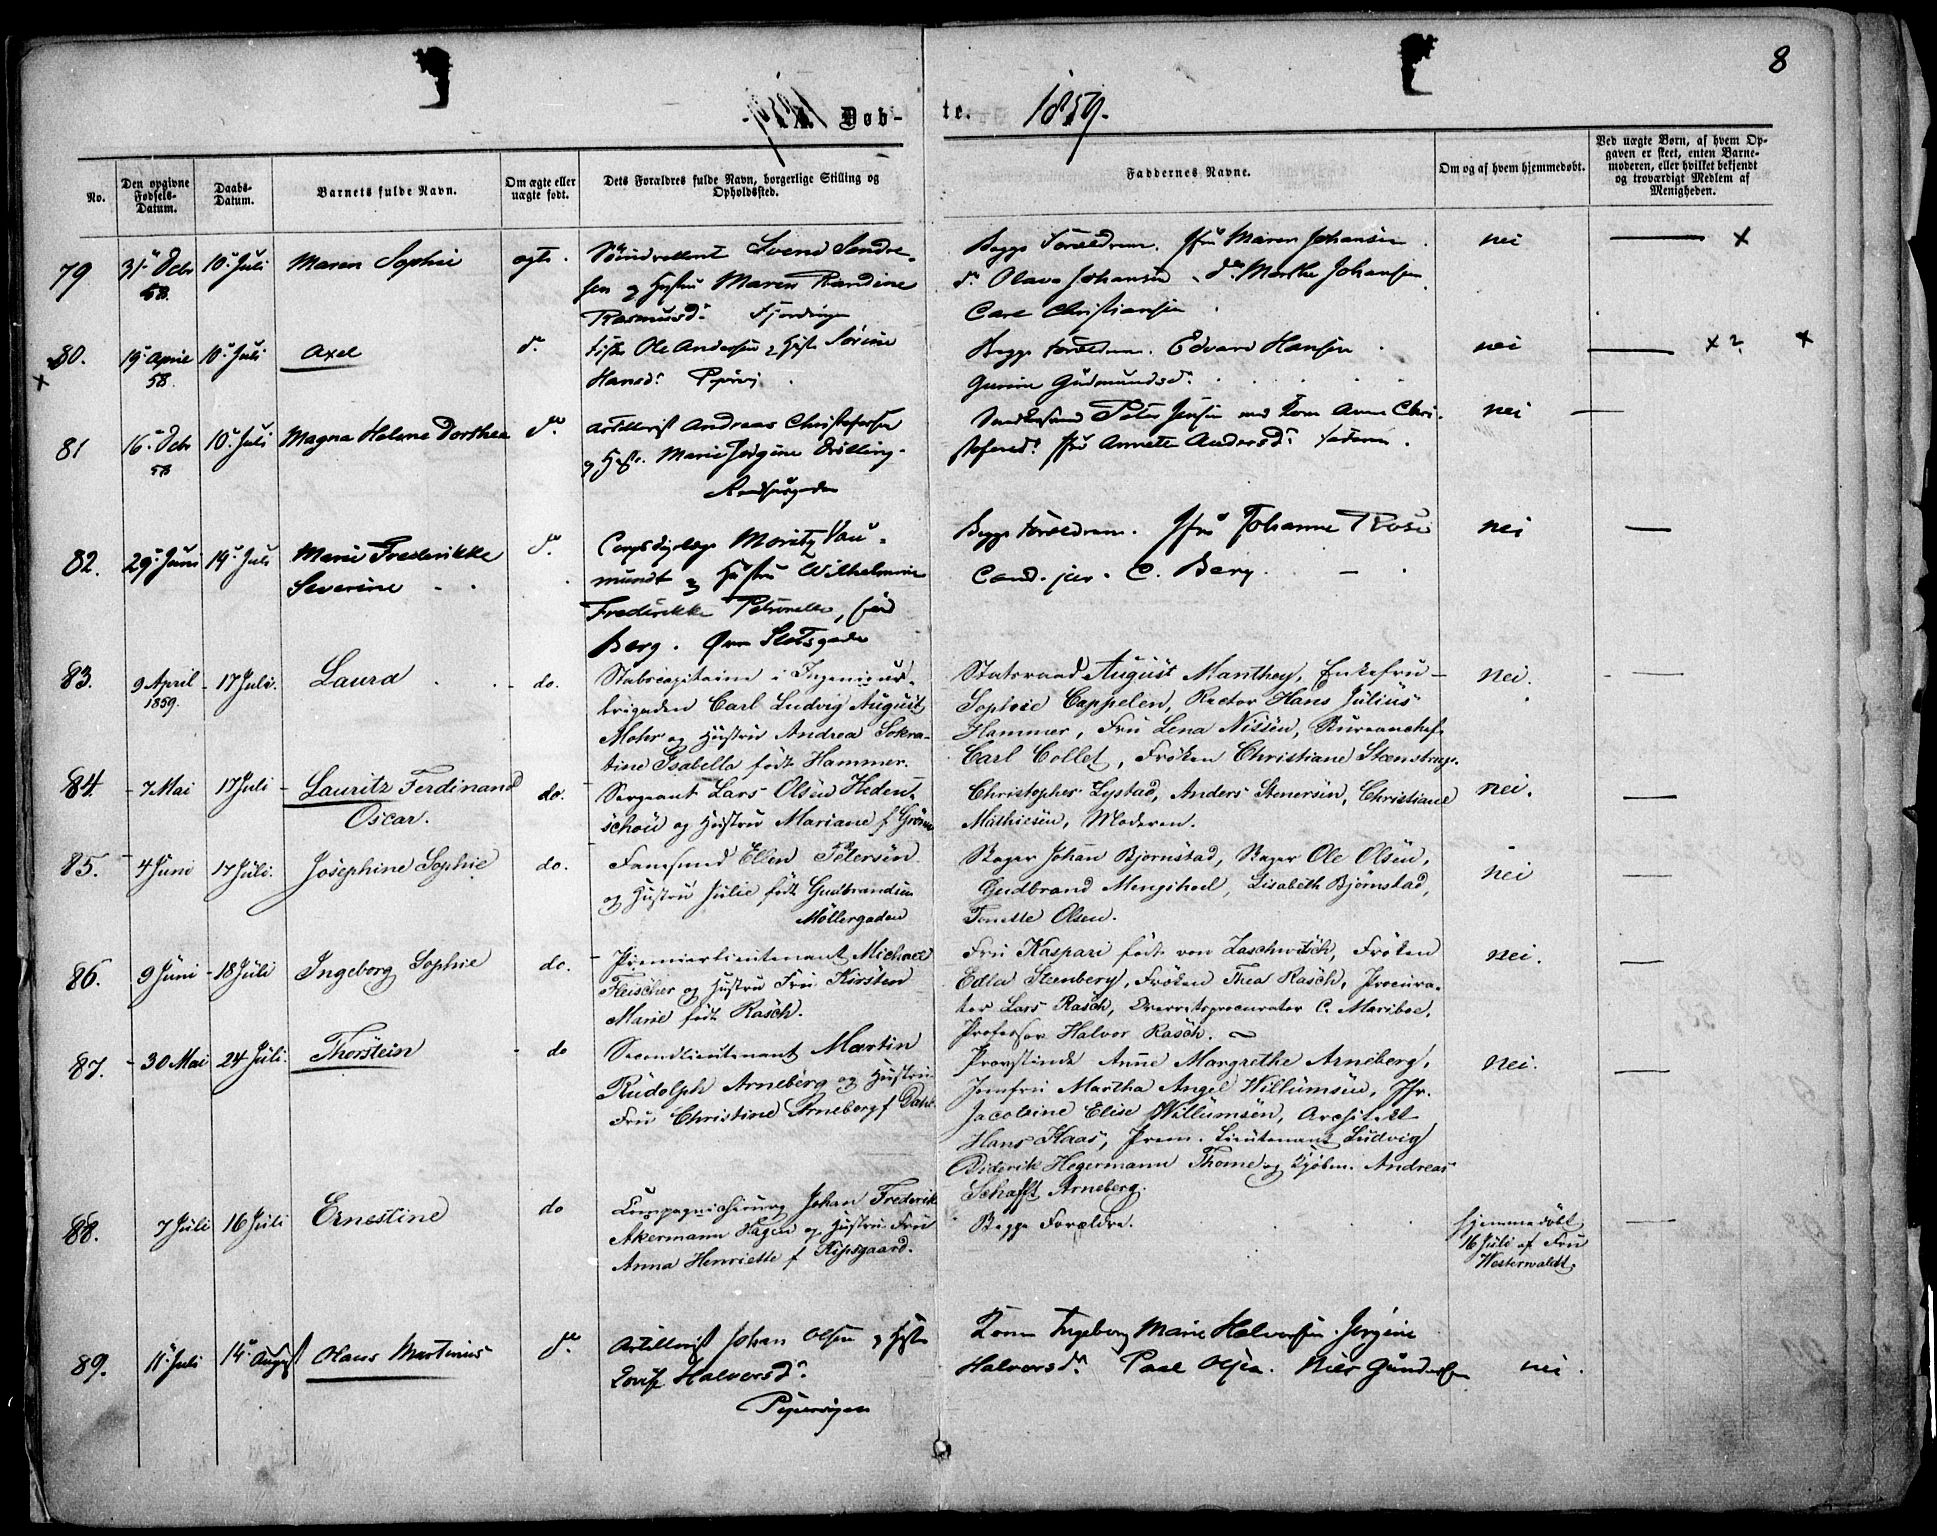 8
Døb-
te. 1859.
No.
Den opgivne Fødsels-Datum.
Daabs-Datum.
Barnets fulde Navn.
Om ægte eller uægte født.
Dets Forældres fulde Navn, borgerlige Stilling og Opholdssted.
Faddernes Navne.
Om og af hvem hjemmedøbt.
Ved uægte Børn, af hvem Opgaven er skeet, enten Barnemoderen, eller hvilket bekjendt og troværdigt Medlem af Menigheden.
79 31 Dcbr 58. 10 Juli Maren Sophie ægte.
Svend Sendre-
sen og Hustru Maren Randine
Rasmusd. Fjerdingen
Begge Forældrene. Jfru Maren Johansen
do Olava Johansen do Marthe Johansen
Carl Christiansen
nei x
80. 19 April 58. 10 Juli Axel do
Ole Andersen & Hustr Sørine
Hansd. Pipervig
Begge Forældrene. Edvard Hansen
Gurine Gudmundsd.
nei x ? x
81 16 Dcbr 58 10 Juli Magna Helene Dorthea do
Artillerist Andreas Christophersen
og Hustr. Marie Jørgine Drilling.
Peter Jensen med Kone Anne Chri-
stofersd. Jfru Annette Andersd. Faderen.
nei
82. 29 Juni 19 Juli Marie Frederikke
Severine do
Corpsdyrlæge Moritz Vau-
mundt og Hustru Wilhelmine
Frederikke Petronelle, født
Berg. Øvre Slotsgade
Begge Forældrene. Jfru Johanne Rose
Cand. jur. C. Berg.
nei
83. 9 April 1859. 17 Juli. Laura do.
Stabscapitaine i Ingenieur-
brigaden Carl Ludvig August
Mohr og Hustru Andrea Sokra-
tine Isabella født Hammer.
Statsraad August Manthey, Enkefru
Sophie Cappelen, Rector Hans Julius
Hammer, Fru Lena Nissen, Bureauchef
Carl Collet, Frøken Christiane Steenstrup.
nei.
84. 7 Mai 17 Juli Lauritz Ferdinand
Oscar. do.
Sergeant Lars Olsen Heden-
schou og Hustru Mariane f
Christopher Lystad, Anders Stenersen, Christiane
Mathiesen, Moderen.
nei.
85. 4 Juni 17 Juli. Josephine Sophie do.
Ellen Petersen
og Hustru Julie født Gudbrandsen
Møllergaden
Bager Johan Bjørnstad, Bager Ole Olsen,
Gudbrand Lisabeth Bjørnstad,
Olsen.
nei
86. 9 Juni 18 Juli Ingeborg Sophie do.
Premierlieutenant Michael
Fleischer og Hustru Fru Kirsten
Marie født Rasch.
Fru Kaspari født von Zaschwitsch, Frøken
Edla Steenberg, Frøken Thea Rasch, Procura-
tor Lars Rasch, Overretsprocurator C. Mariboe,
Professor Halvor Rasch.
nei.
87. 30 Mai 24 Juli. Thorstein do
Secondlieutenant Martin
Rudolph Arneberg og Hustru
Fru Christine Arneberg f Dahl.
Provstinde Anne Margrethe Arneberg,
Jomfru Martha Angel Willumsen, Jfr.
Jacobine Elise Willumsen, Architekt
Hans Haas, Prem. Lieutenant Ludvig
Diderik Hegermann Thome og Kjøbm. Andreas
Schafft Arneberg.
nei.
88. 7 Juli 16 Juli Ernestine do
Compagnichirurg Johan Frederik
Akermann Hagen og Hustru Fru
Anna Henriette f Kipsgaard.
Begge Forældre.
Hjemmedøbt
16 Juli af Fru
Westerwaldt.
89. 11 Juli 14 August Olaus Martinius do
Artillerist Johan Olsen & Hustr
Lovise Halvorsd.
Pipervigen
Konen Ingeborg Marie Halvorsen. Jørgine
Halvorsd. Paul Olsen. Niels Gundersen
nei.